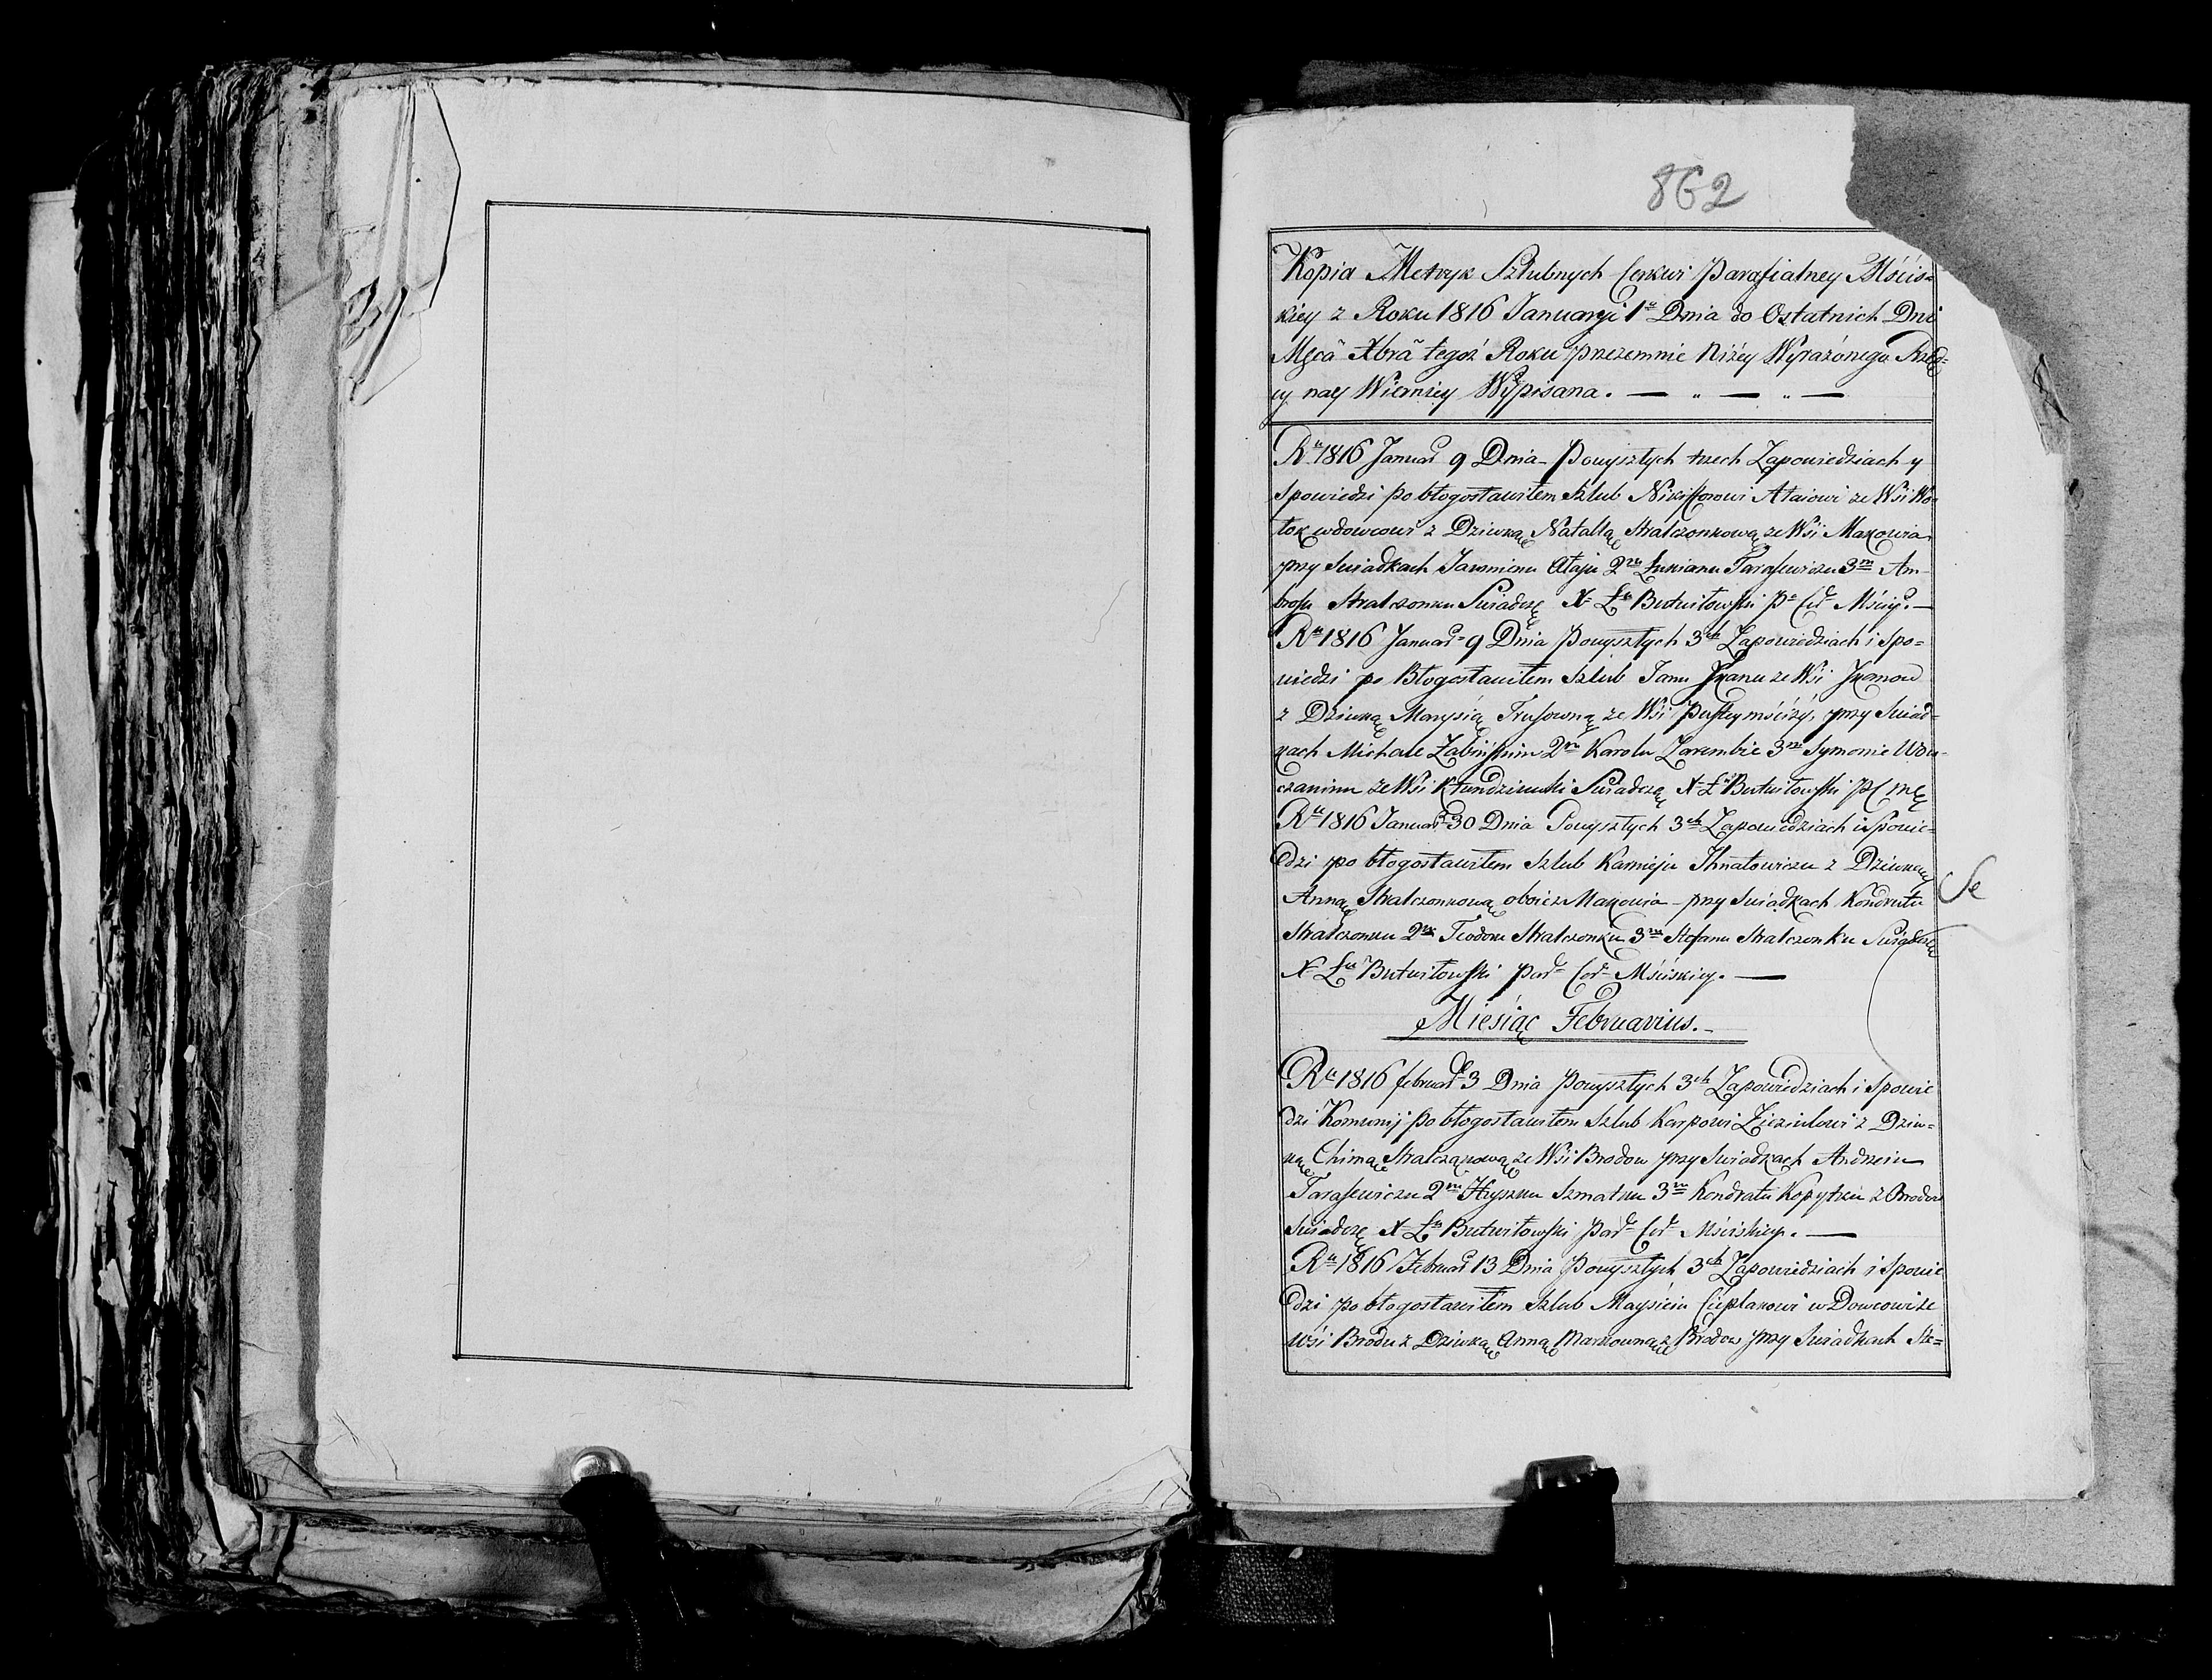 862
Kopia Metryk Szlubnych Cerkwi Parafialney Mścis=
kiey z Roku 1816 Januaryi 1º Dnia do Ostatnich Dni
Mscã Xbrã tegoż Roku przezemnie Niżey Wyrażónego
nay Wierniey Wypisana. — „ — „ —
Ru 1816 Januar 9 Dnia Powyszłych trzech Zapowiedziach y
Spowiedzi po błogosławiłem Szlub Nikifforowi Ataiowi ze Wsi Wo=
łok wdowcowi z Dziwką Natallą Stralczonkową ze Wsi Makowia
przy Swiadkach Jaromienu Ataju 2m Łukianu Tarasewiczu 3m Am=
brosu Stralczonku Swiadczę X Łu Butwiłowski Pr Cer Mściy. —
Ru 1816 Januar 9 Dnia Powyszłych 3ch Zapowiedziach i Spo=
wiedzi po Błogosławiłem Szlub Janu Jkanu ze Wsi Jkanow
z Dziwką Marysią Trusowną ze Wsi Pustey mściży, przy Swiad=
kach Michale 2m Karolu Zarembie 3m Symonie Wdu=
czaninu ze Wsi Swiadczą X Ł Butwiłowski PC
Ru 1816 Januar 30 Dnia Powyszłych 3ch Zapowiedziach i Spowie=
dzi po błogosławiłem Szlub Karnieju Ihnatowiczu z Dziwką
Anną Stralczonkową oboie z Makowia przy Swiadkach Kondratu
Stralczonku 2m Teodoru Stralczonku 3m Stefanu Stralczonku Swiadczę
X Łu Butwiłowski Par Cer Mściskiey. —
Miesiąc Februarius.
Ru 1816 februar 3 Dnia Powyszłych 3ch Zapowiedziach i Spowie
dzi Komunij po błogosławiłem Szlub Karpowi Zieziulowi z Dziw=
ką Chimą Stralcząkową ze Wsi Brodow przy Swiadkach Andrzeiu
Tarasewiczu 2m Hryszku Szmatku 3m Kondratu Kopytku z Brodow
Swiadczę X Łu Butwiłowski Par Cer Mściskiey. —
Ru 1816 Februar 13 Dnia Powyszłych 3ch Zapowiedziach i Spowie
dzi po błogosławiłem Szlub Maysieiu Cieplakowi wDowcowi ze
wsi Brodu z Dziwką Anną Markowną z Brodow przy Swiadkach Ste=